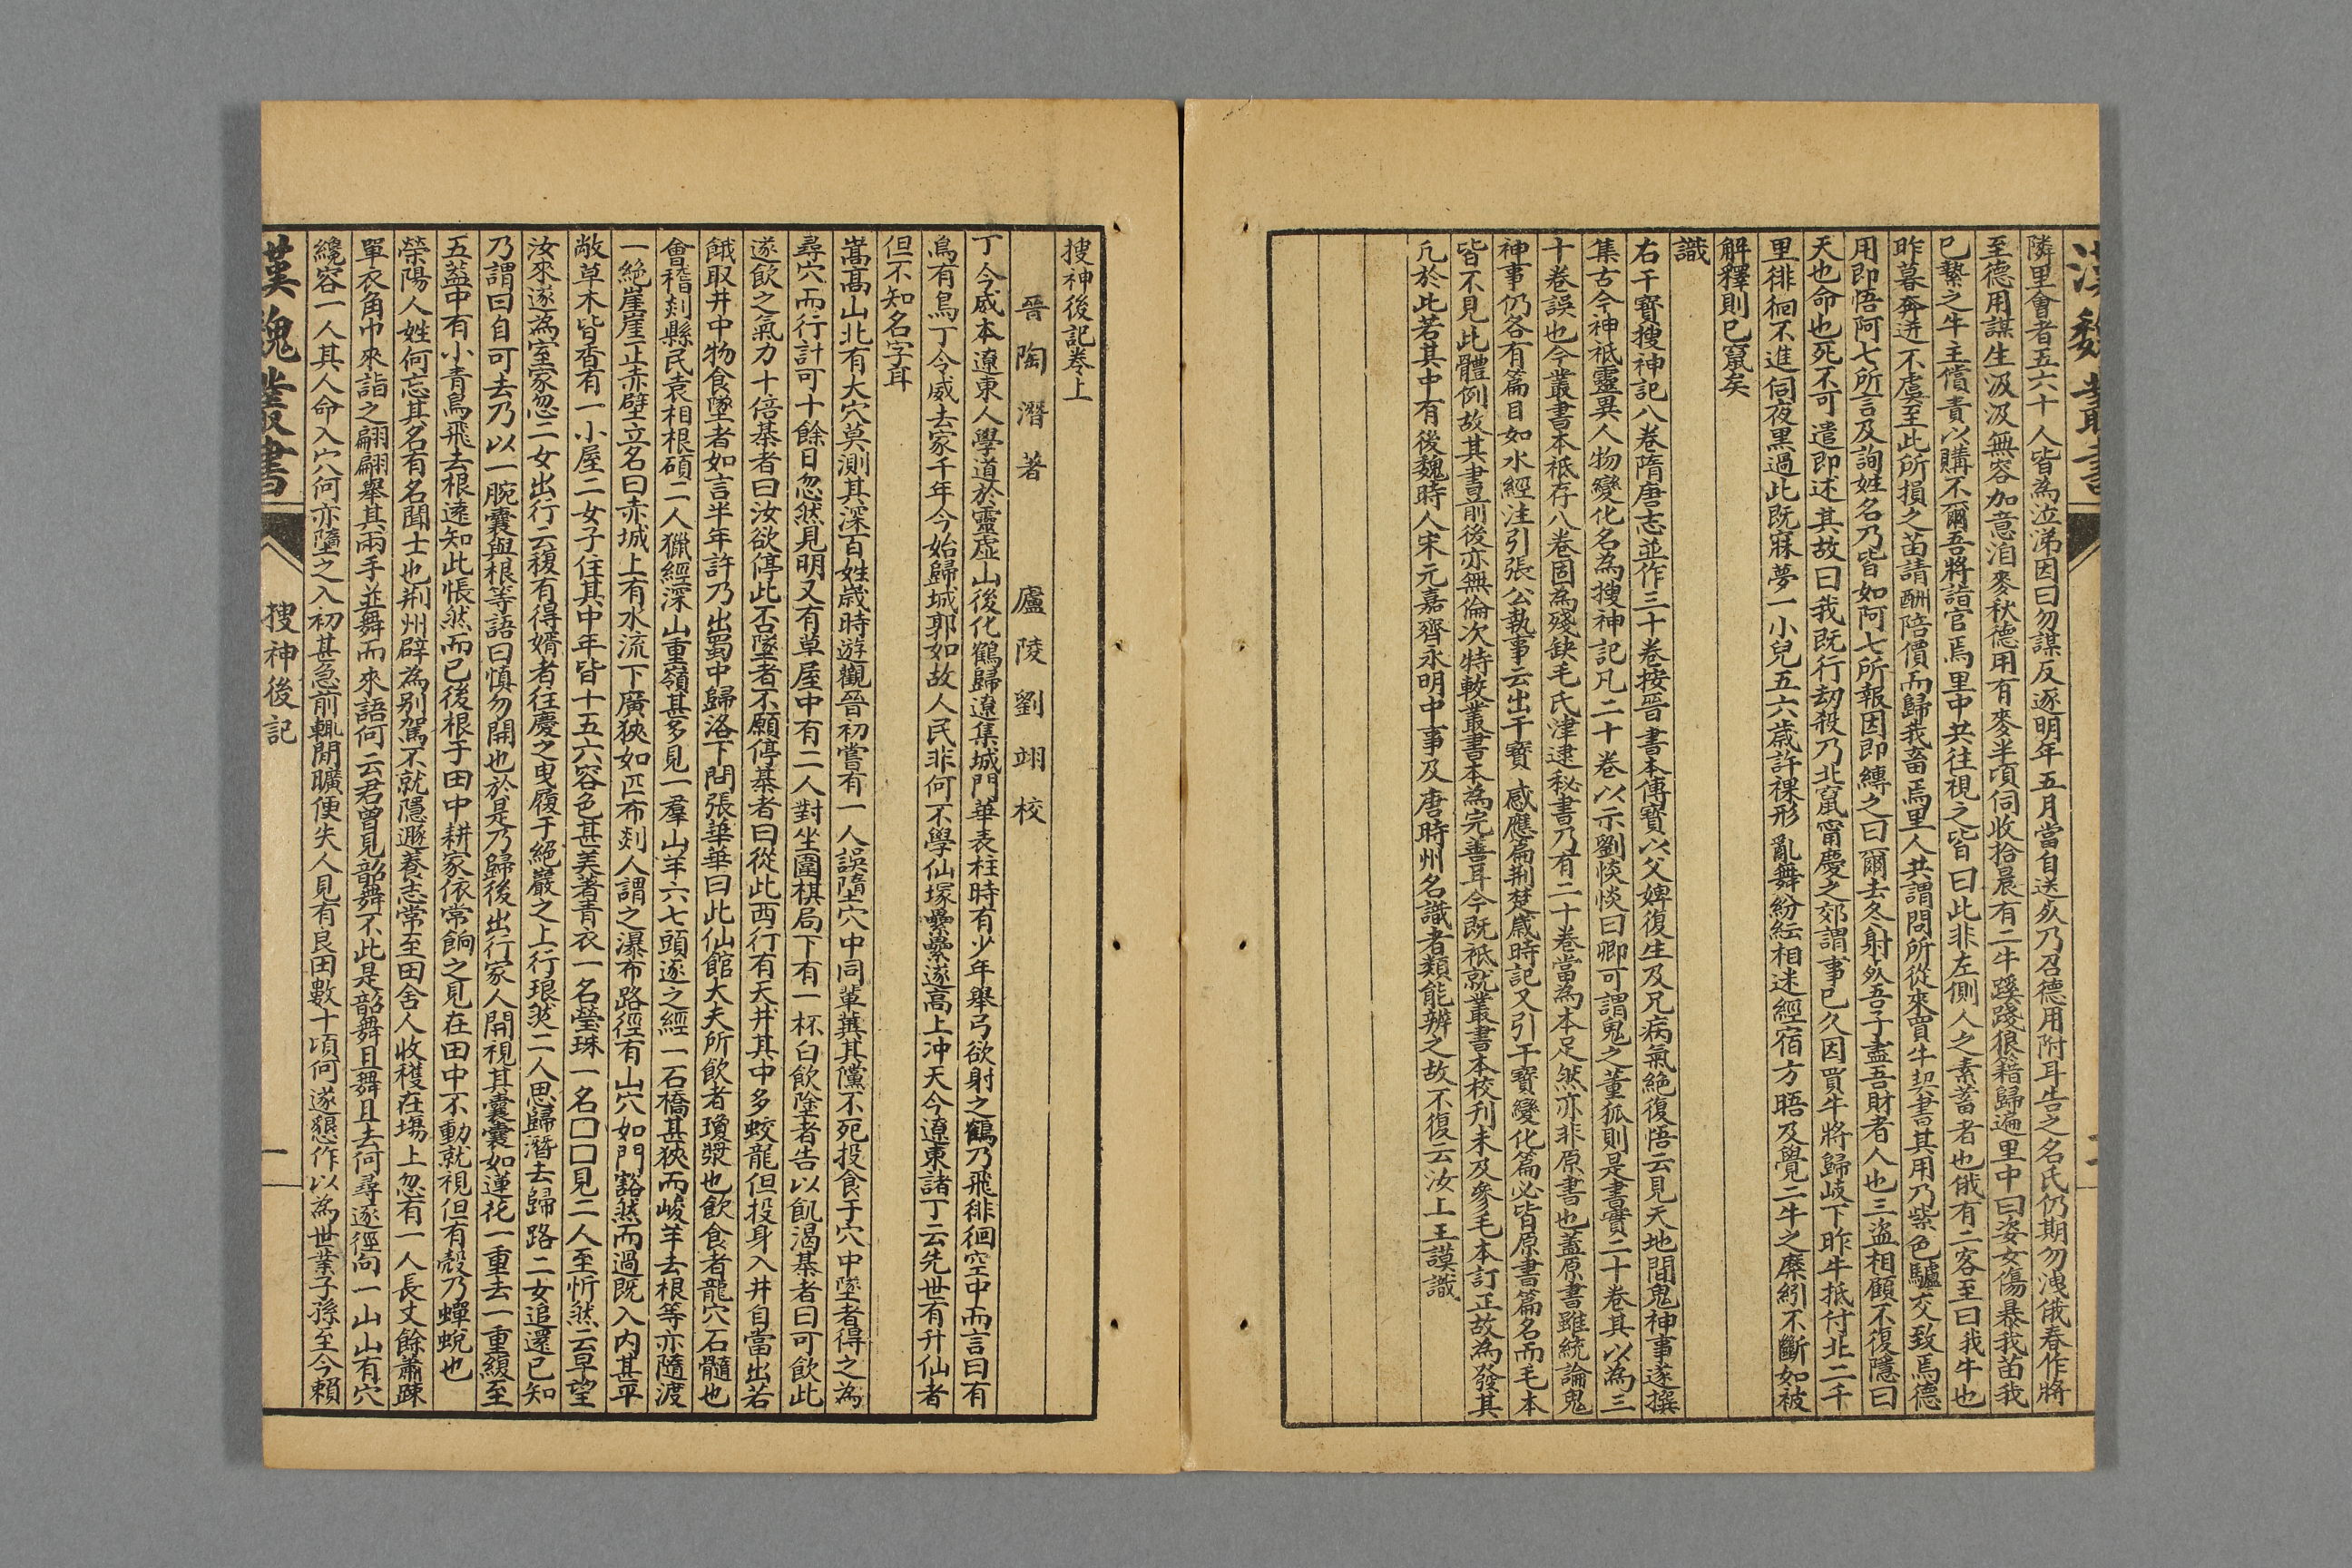 漢魏叢書
隣里會者五六十人皆為泣涕因曰勿謀反逐明年五月當自送乃召德用附耳告之名氏仍期勿洩俄春作將
至德用謀生汲汲無容加意洎麥秋德用有麥半頃伺收拾晨有二牛蹊踐狼籍歸遍里中曰姿女傷暴我苗我
已縶之牛主償責以購不爾吾將詣官焉里中共往視之皆曰此非左側人之素蓄者也俄有二客至曰我牛也
昨暮奔迸不虞至此所損之苗請酬陪價而歸我畜焉里人共謂問所從來賈牛契書其用乃紫色驢交致焉德
用即悟阿七所言及詢姓名乃皆如阿七所報因即縛之曰爾去冬射吾子盡吾財者人也三盜相顧不復隱曰
天也命也死不可遣即述其故曰我既行劫殺乃北竄甯慶之郊謂事已久因買牛將歸岐下昨牛抵付北二千
里徘徊不進伺夜黑過此既寐夢一小兒五六歲許裸形亂舞紛紜相迷經宿方晤及覺二牛之縻紖不斷如被
解釋則已竄矣
識
右干寶搜神記八卷隋唐志並作三十卷按晉書本傳寶以父婢復生及兄病氣絶復悟云見天地間鬼神事遂撰
集古今神祇靈異人物變化名為搜神記凡二十卷以示劉惔惔曰卿可謂鬼之董狐則是書實二十卷其以為三
十卷誤也今叢書本祇存八卷固為殘缺毛氏津逮秘書乃有二十卷當為本足然亦非原書也蓋原書雖統論鬼
神事仍各有篇目如水經注引張公執事云出干寶感應篇荆楚歲時記又引干寶變化篇必皆原書篇名而毛本
皆不見此體例故其書前後亦無倫次特較叢書本為完善耳今既祇就叢書本校刊未及參毛本訂正故為發其
凢於此若其中有後魏時人宋元嘉齊永明中事及唐時州名識者類能辨之故不復云汝上王謨識
搜神後記卷上
晉陶潛著　廬陵劉翊校
丁令威本遼東人學道於靈虛山後化鶴歸遼集城門華表柱時有少年舉弓欲射之鶴乃飛徘徊空中而言曰有
鳥有鳥丁令威去家千年今始歸城郭如故人民非何不學仙塚纍纍遂高上冲天今遼東諸丁云先世有升仙者
但不知名字耳
嵩高山北有大穴莫測其深百姓歲時遊觀晉初嘗有一人誤墮穴中同輩冀其儻不死投食于穴中墜者得之為
尋穴而行計可十餘日忽然見明又有草屋中有二人對坐圍棋局下有一杯白飲墜者告以飢渴棊者曰可飲此
遂飲之氣力十倍棊者曰汝欲停此否墜者不願停棊者曰從此西行有天井其中多蛟龍但投身入井自當出若
餓取井中物食墜者如言半年許乃出蜀中歸洛下問張華華曰此仙館大夫所飲者瓊漿也飲食者龍穴石髓也
會稽剡縣民袁相根碩二人獵經深山重嶺甚多見一羣山羊六七頭逐之經一石橋甚狹而峻羊去根等亦隨渡
一絶崖崖正赤壁立名曰赤城上有水流下廣狹如匹布剡人謂之瀑布路徑有山穴如門豁然而過既入内甚平
敞草木皆香有一小屋二女子住其中年皆十五六容色甚美著青衣一名瑩珠一名囗囗見二人至忻然云早望
汝來遂為室家忽二女出行云複有得婿者往慶之曳履于絕巖之上行琅琅二人思歸潛去歸路二女追還已知
乃謂曰自可去乃以一腕囊與根等語曰慎勿開也於是乃歸後出行家人開視其囊囊如蓮花一重去一重復至
五蓋中有小青鳥飛去根還知此悵然而已後根于田中耕家依常餉之見在田中不動就視但有殼乃蟬蛻也
榮陽人姓何忘其名有名聞士也荆州辟為别駕不就隱遯養志常至田舍人收穫在場上忽有一人長丈餘蕭疎
單衣角巾來詣之翩翩舉其兩手並舞而來語何云君曾見韶舞不此是韶舞且舞且去何尋逐徑向一山山有穴
纔容一人其人命入穴何亦隨之入初甚急前輒開曠便失人見有良田數十頃何遂懇作以為世業子孫至今賴
漢魏叢書　搜神後記　一